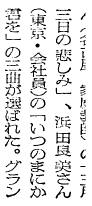 三日の悲しみ」、浜田良美さん
（東京・会社員）の「いつのまにか
君を」の三曲が選ばれた。グラン